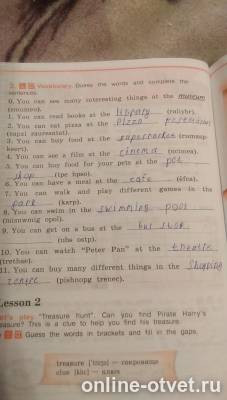 2. Vocabulary. Guess the words and complete the
sentences.
0. You can see many interesting things at the museum
(muusmoe).
1. You can read books at the library (ralibyr).
2. You can eat pizza at the pizza
(zapzi raoresatnt).
3. You can buy food at the supermarket
4. You can see a film at the cinema
5. You can buy food for your pets at the pet
shop (tpe hpso).
6. You can have a meal at the cafe (éfca).
7. You can walk and play different games in the
park (karp).
8. You can swim in the swimming pool
(mimswnig opol).
9. You can get on a bus at the bus stop
(ubs ostp).
10. You can watch "Peter Pan" at the theatre
(trethae).
11. You can buy many different things in the Shopping
centre (pishnopg trenec).
Lesson 2
Let's play "Treasure hunt". Can you find Pirate Harry's
treasure? This is a clue to help you find his treasure.
Guess the words in brackets and fill in the gaps.
treasure ['treʒə] — сокровище
clue [klu:] — ключ
online-otvet.ru